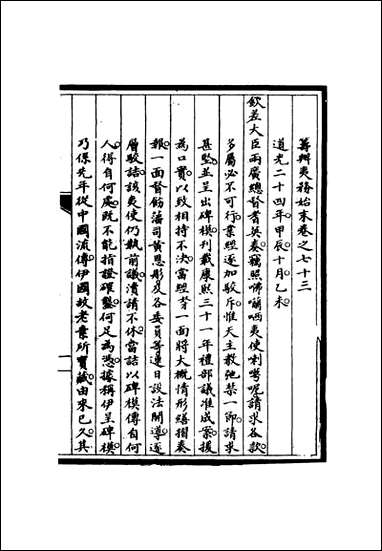 籌辦夷務始末卷之七十三
道光二十四年甲辰十月乙未
欽差大臣兩廣總督耆英奏竊照咈囒哂夷使喇嘮呢請求各款
多屬必不可行業經逐加駁斥惟天主教弛禁一節請求
甚堅並呈出碑模刊載康熙三十一年禮部議准成案援
為口實以致相持不決當經耆一面將大概情形繕摺奏
報一面督飭藩司黃恩彤及各委員等連日設法開導逐
層駁詰該夷使仍執前議瀆請不休當詰以碑模傳自何
人得自何處既不能指證確鑿何足為憑據稱伊呈碑模
乃係先年從中國流傳伊國故老業所寶藏由來已久其